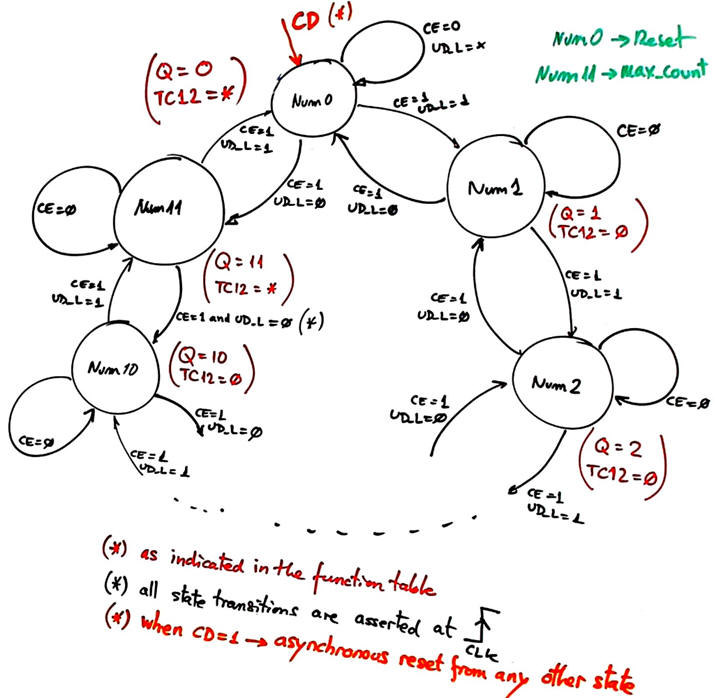 CD (*)
CE=0
UD_L=x
Num0 → Reset
Num11 → max_count
(Q=0
TC12=*)
Num0
CE=1
UD_L=1
CE=1
UD_L=1
CE=1
UD_L=0
CE=1
UD_L=0
CE=0
Num11
CE=0
Num1
(Q=1
TC12=0)
(Q=11
TC12=*)
CE=1
UD_L=1
CE=1 and UD_L=0 (*)
CE=1
UD_L=1
CE=1
UD_L=0
Num10
(Q=10
TC12=0)
CE=0
CE=1
UD_L=0
CE=1
UD_L=1
CE=1
UD_L=0
Num2
CE=0
(Q=2
TC12=0)
CE=1
UD_L=1
(*) as indicated in the function table
(*) all state transitions are asserted at
CLK
(*) when CD=1 → asynchronous reset from any other state